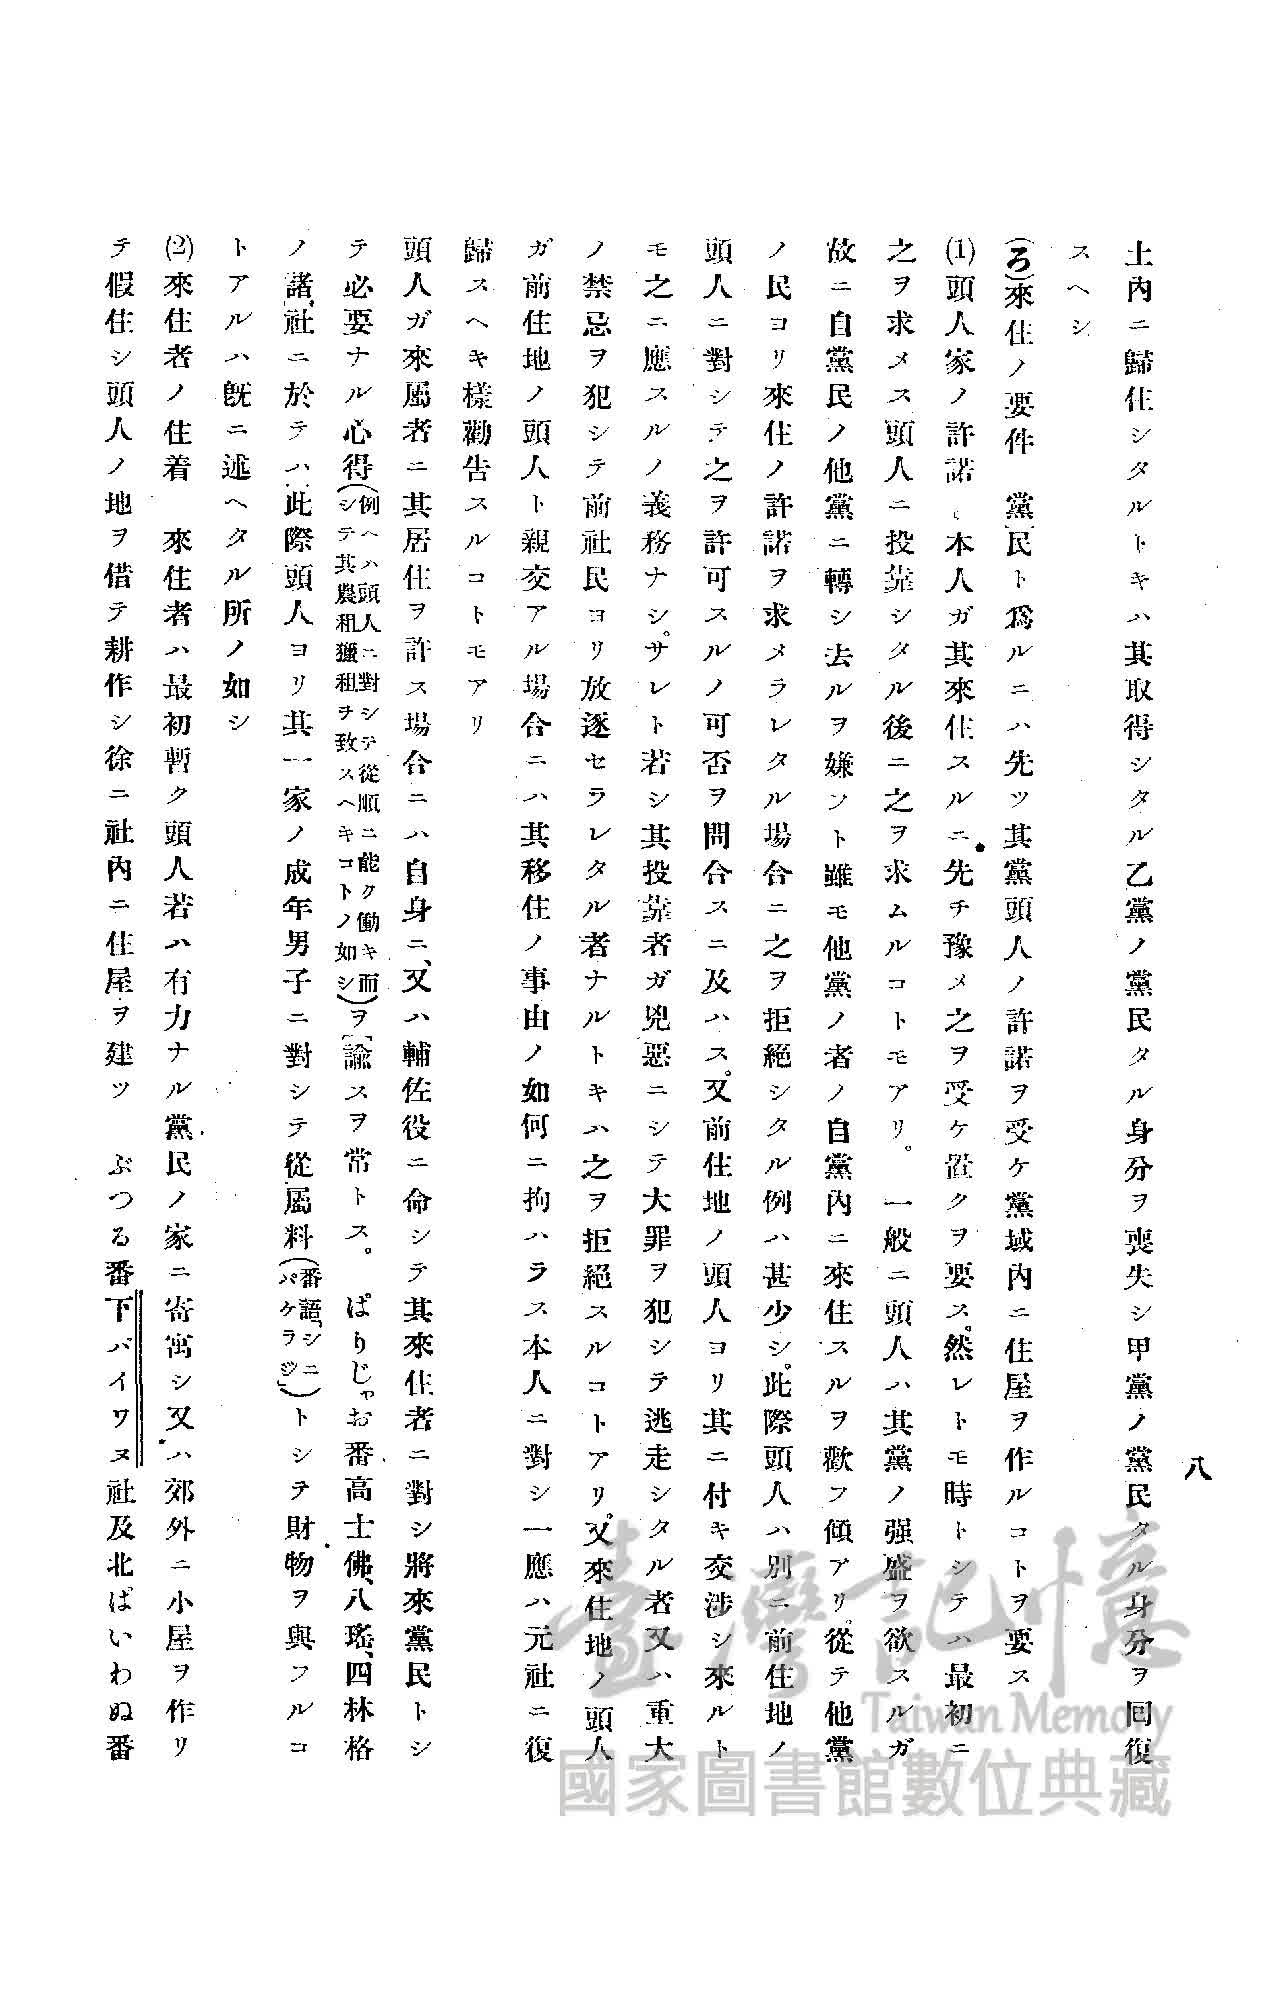 八
土內ニ歸住シタルトキハ其取得シタル乙黨ノ黨民タル身分ヲ喪失シ甲黨ノ黨民タル身分ヲ回復
スヘシ
(ろ)來住ノ要件　黨民ト爲ルニハ先ツ其黨頭人ノ許諾ヲ受ケ黨域內ニ住屋ヲ作ルコトヲ要ス
(1)頭人家ノ許諾　本人ガ其來住スルニ先チ豫メ之ヲ受ケ置クヲ要ス。然レトモ時トシテハ最初ニ
之ヲ求メス頭人ニ投靠シタル後ニ之ヲ求ムルコトモアリ。一般ニ頭人ハ其黨ノ强盛ヲ欲スルガ
故ニ自黨民ノ他黨ニ轉シ去ルヲ嫌フト雖モ他黨ノ者ノ自黨內ニ來住スルヲ歡フ傾アリ。從テ他黨
ノ民ヨリ來住ノ許諾ヲ求メラレタル場合ニ之ヲ拒絕シタル例ハ甚少シ。此際頭人ハ別ニ前住地ノ
頭人ニ對シテ之ヲ許可スルノ可否ヲ問合スニ及ハス。又前住地ノ頭人ヨリ其ニ付キ交涉シ來ルト
モ之ニ應スルノ義務ナシ。サレト若シ其投靠者ガ兇惡ニシテ大罪ヲ犯シテ逃走シタル者又ハ重大
ノ禁忌ヲ犯シテ前社民ヨリ放逐セラレタル者ナルトキハ之ヲ拒絕スルコトアリ。又來住地ノ頭人
ガ前住地ノ頭人ト親交アル場合ニハ其移住ノ事由ノ如何ニ拘ハラス本人ニ對シ一應ハ元社ニ復
歸スヘキ樣勸告スルコトモアリ
頭人ガ來屬者ニ其居住ヲ許ス場合ニハ自身ニ、又ハ輔佐役ニ命シテ其來住者ニ對シ將來黨民トシ
テ必要ナル心得(例ヘハ頭人ニ對シテ從順ニ能ク働キ而シテ其農租獵租ヲ致スヘキコトノ如シ)ヲ諭スヲ常トス。ぱりじゃお番高士佛、八瑤、四林格
ノ諸社ニ於テハ此際頭人ヨリ其一家ノ成年男子ニ對シテ從屬料(番語「シニパケラジ」)トシテ財物ヲ與フルコ
トアルハ旣ニ述ヘタル所ノ如シ
(2)來住者ノ住着　來住者ハ最初暫ク頭人若ハ有力ナル黨民ノ家ニ寄寓シ又ハ郊外ニ小屋ヲ作リ
テ假住シ頭人ノ地ヲ借テ耕作シ徐ニ社內ニ住屋ヲ建ツ　ぶつる番下パイワヌ社及北ぱいわぬ番
臺灣記憶
Taiwan Memory
國家圖書館數位典藏